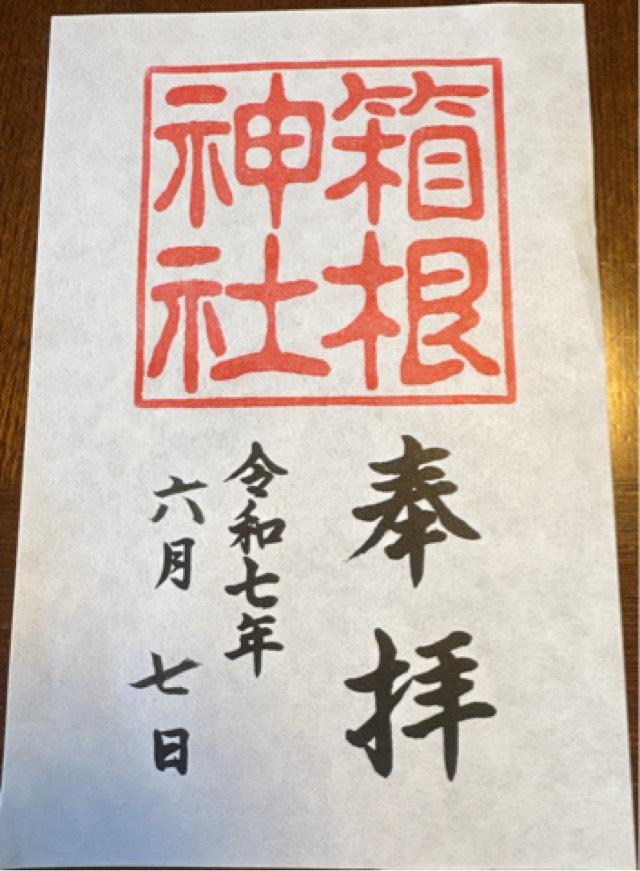 箱根
神社
奉拝
令和七年
六月七日